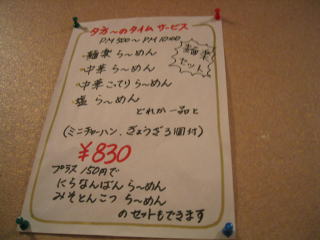 夕方〜のタイムサービス
PM 5:00〜PM 10:00
麺楽
セット
・麺楽 ら〜めん
・中華 ら〜めん
・中華こってり ら〜めん
・塩 ら〜めん
どれか一品と
(ミニチャーハン、ぎょうざ3個付)
¥830
プラス150円で
にらなんばん ら〜めん
みそとんこつ ら〜めん
のセットもできます